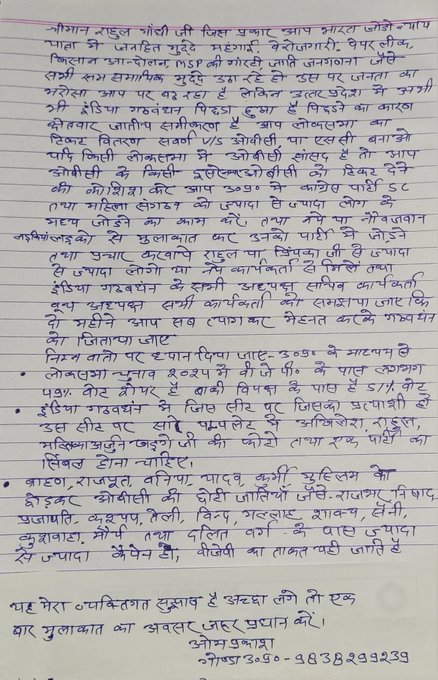 श्रीमान राहुल गाँधी जी जिस प्रकार आप भारत जोडो न्याय
यात्रा मे जनहित मुद्दे महंगाई, बेरोजगारी, पेपर लीक,
किसान आन्दोलन, MSP की गारंटी जाति जनगणना जैसे
सभी सम सामायिक मुद्दे उठा रहे हो उस पर जनता का
भरोसा आप पर बढ रहा है लेकिन उत्तर प्रदेश मे अभी
भी इंडिया गठबंधन पिछडा हुआ है पिछडने का कारण
जातीय समीकरण है आप लोकसभा का
टिकट वितरण सवर्ण V/S ओबीसी या एससी बनाओ
यदि किसी लोकसभा मे ओबीसी सांसद है तो आप
ओबीसी के किसी दुसरे ओबीसी को टिकट देने
की कोशिश करे आप उ०प्र० मे कांग्रेस पार्टी SC
तथा महिला संगठन को ज्यादा से ज्यादा लोग के
मध्य जोडने का काम करें, तथा नये या नौवजवान
लडकियो लडको से मुलाकात कर उनको पार्टी मे जोडने
तथा प्रचार करवाये राहुल या प्रियंका जी से ज्यादा
से ज्यादा लोगो या नये कार्यकर्ता से मिले तथा
इंडिया गठबंधन के सभी अध्यक्ष सचिव कार्यकर्ता
बूथ अध्यक्ष सभी कार्यकर्ता को समझाया जाए कि
दो महीने आप सब त्याग कर मेहनत करके गठबंधन
को जिताया जाए
निम्न बातो पर ध्यान दिया जाए- उ०प्र० के माध्यम से
• लोकसभा चुनाव २०२४ मे बी जे पी० के पास लगभग
49% वोट शेयर है बाकी विपक्ष के पास है 51% वोट
• इंडिया गठबंधन मे जिस सीट पर जिसका प्रत्याशी हो
उस सीट पर सारे पम्पलेट मे अखिलेश, राहुल,
मल्लिकाअर्जुन खड़गे जी की फोटो तथा एक पार्टी का
सिंबल होना चाहिए।
• ब्राह्मण, राजपूत, वनिया, यादव, कुर्मी मुस्लिम को
छोडकर ओबीसी की छोटी जातियाँ जैसे- राजभर निषाद
प्रजापति, कश्यप, तेली, बिन्द, मल्लाह, शाक्य, सैनी,
कुशवाहा, मौर्य तथा दलित वर्ग के पास ज्यादा
से ज्यादा कैपेन हो, बीजेपी का ताकत यही जाति है
यह मेरा व्यक्तिगत सुझाव है अच्छा लगे तो एक
बार मुलाकात का अवसर जरूर प्रधान करें।
ओमप्रकाश
गोण्डा उ०प्र० - 9838299239